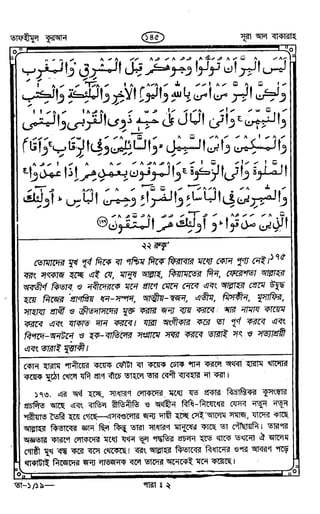 তাফহীমুল কুরআন
১৪৫
সূরা আল বাকারাহ
لَيْسَ الْبِرَّ اَنْ تُوَلُّوْا وُجُوْهَكُمْ قِبَلَ الْمَشْرِقِ وَالْمَغْرِبِ
وَلٰكِنَّ الْبِرَّ مَنْ اٰمَنَ بِاللّٰهِ وَالْيَوْمِ الْاٰخِرِ وَالْمَلٰٓئِكَةِ وَالْكِتٰبِ
وَالنَّبِيّٖنَ ۚ وَاٰتَى الْمَالَ عَلٰى حُبِّهٖ ذَوِى الْقُرْبٰى وَالْيَتٰمٰى
وَالْمَسٰكِيْنَ وَابْنَ السَّبِيْلِ ۙ وَالسَّآئِلِيْنَ وَفِى الرِّقَابِ ۚ وَاَقَامَ
الصَّلٰوةَ وَاٰتَى الزَّكٰوةَ ۚ وَالْمُوْفُوْنَ بِعَهْدِهِمْ اِذَا عٰهَدُوْا ۚ
وَالصّٰبِرِيْنَ فِى الْبَاْسَآءِ وَالضَّرَّآءِ وَحِيْنَ الْبَاْسِ ؕ اُولٰٓئِكَ
الَّذِيْنَ صَدَقُوْا ؕ وَاُولٰٓئِكَ هُمُ الْمُتَّقُوْنَ
২২ রুকূ'
তোমাদের মুখ পূর্ব দিকে বা পশ্চিম দিকে ফিরাবার মধ্যে কোন পুণ্য নেই।১৭৫
বরং সৎকাজ হচ্ছে এই যে, মানুষ আল্লাহ, কিয়ামতের দিন, ফেরেশতা আল্লাহর
অবতীর্ণ কিতাব ও নবীদেরকে মনে প্রাণে মেনে নেবে এবং আল্লাহর প্রেমে উদ্বুদ্ধ
হয়ে নিজের প্রাণপ্রিয় ধন-সম্পদ, আত্মীয়-স্বজন, এতীম, মিসকীন, মুসাফির,
সাহায্য প্রার্থী ও ক্রীতদাসদের মুক্ত করার জন্য ব্যয় করবে। আর নামায কায়েম
করবে এবং যাকাত দান করবে। যারা অংগীকার করে তা পূর্ণ করবে এবং
বিপদে-অনটনে ও হক-বাতিলের সংগ্রামে সবর করবে তারাই সৎ ও সত্যাশ্রয়ী
এবং তারাই মুত্তাকী।
কোন হারাম পানীয়ের কয়েক ফোঁটা বা কয়েক ঢোক পান করলে অথবা হারাম খাদ্যের
কয়েক মুঠো খেলে যদি প্রাণ বাঁচে তাহলে তার বেশী ব্যবহার না করা।
১৭৩. এর অর্থ হচ্ছে, সাধারণ লোকদের মধ্যে যত প্রকার বিভ্রান্তিকর কুসংস্কার
প্রচলিত আছে এবং বাতিল রীতিনীতি ও অর্থহীন বিধি-নিষেধের যেসব নতুন নতুন
শরীয়াত তৈরি হয়ে গেছে—এসবগুলোর জন্য দায়ী হচ্ছে সেই আলেম সমাজ, যাদের কাছে
আল্লাহর কিতাবের জ্ঞান ছিল কিন্তু তারা সাধারণ মানুষের কাছে তা পৌঁছায়নি। তারপর
অজ্ঞতার কারণে লোকদের মধ্যে যখন ভুল পদ্ধতির প্রচলন হতে থাকে তখনো ঐ জালেম
গোষ্ঠী মুখ বন্ধ করে বসে থেকেছে। বরং আল্লাহর কিতাবের বিধানের ওপর আবরণ পড়ে
থাকাটাই নিজেদের জন্য লাভজনক বলে তাদের অনেকেই মনে করেছে।
তা-১/১৯—
পারা ঃ ২